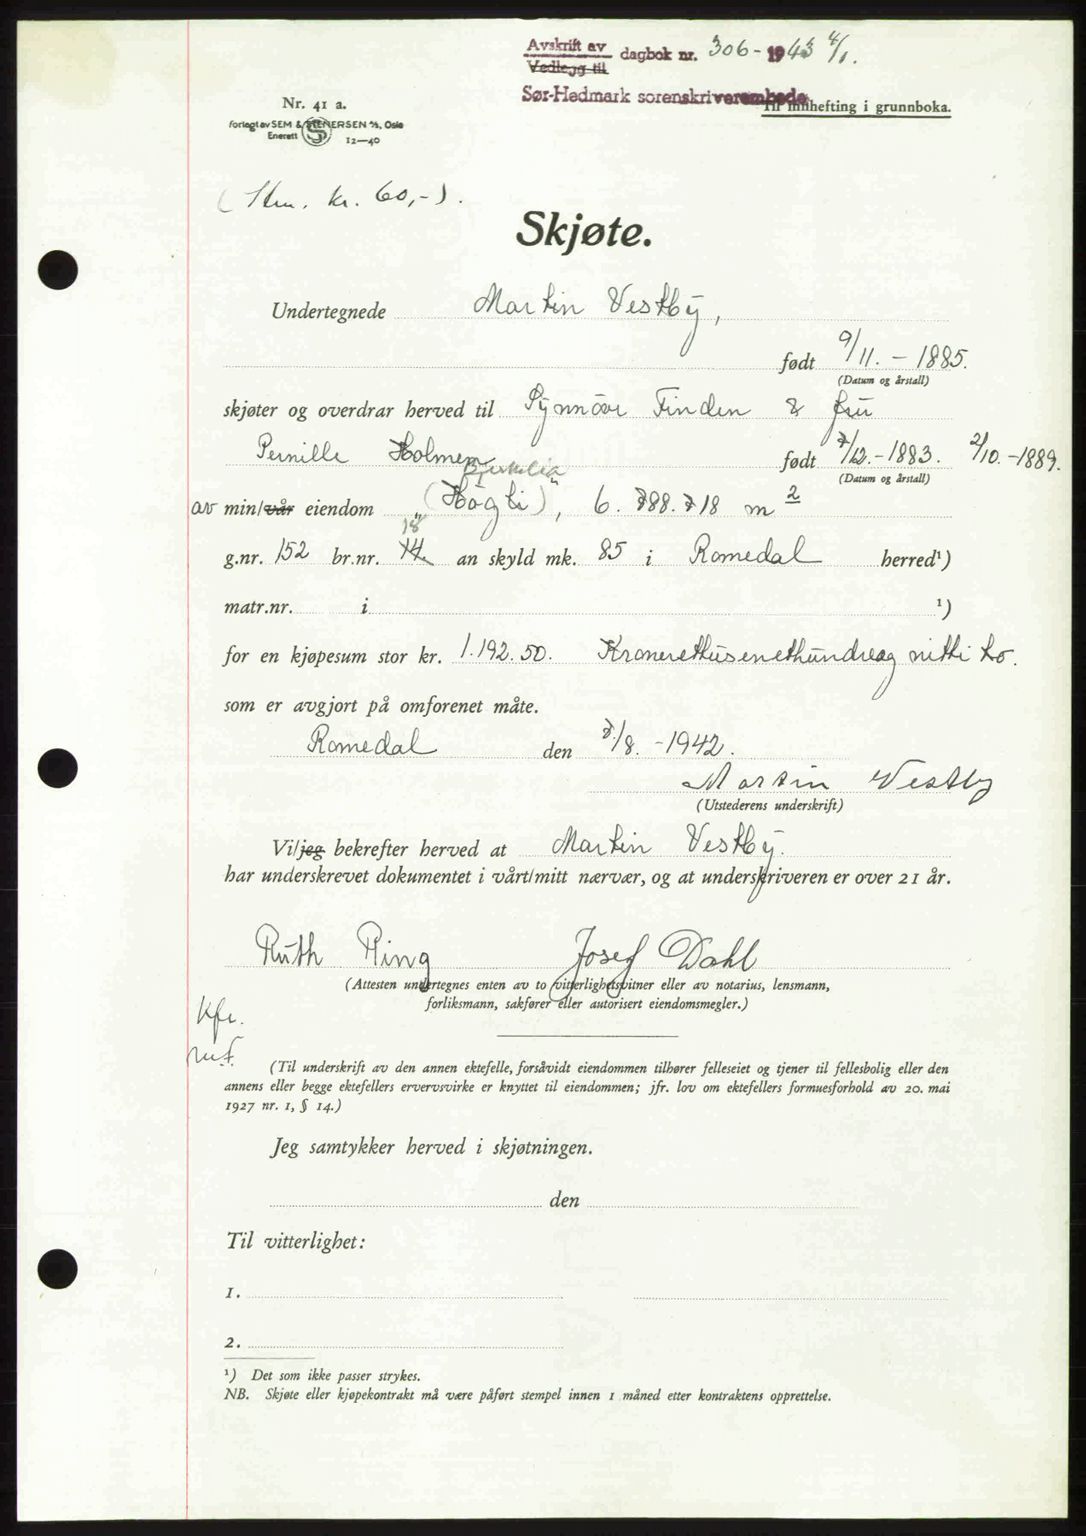 Avskrift av dagbok nr. 306-1943 4/1.
Vedlegg til
Sør-Hedmark sorenskriverembede
Til innhefting i grunnboka.
Nr. 41 a.
Forlagt av SEM & STENERSEN A/S, Oslo
Enerett 12—40
( Stm. kr. 60,-).
Skjøte.
Undertegnede Martin Vestby,
født 9/11. - 1885.
(Datum og årstall)
skjøter og overdrar herved til Synnöve Finden & fru
Pernille Holmen født 7/12.-1883. 2/10.-1889.
(Datum og årstall)
Bjerkelia
av min/vår eiendom (Hagli), 6. 788.718 m2
18
g.nr. 152 br.nr. 14. an skyld mk. 85 i Romedal herred¹)
matr.nr. i ¹)
for en kjøpesum stor kr. 1.192.50. Kronerettusenethundreog nitti to.
som er avgjort på omforenet måte.
Romedal den 7/8. -1942.
Martin Vestby
(Utstederens underskrift)
Vi/jeg bekrefter herved at Martin Vestby.
har underskrevet dokumentet i vårt/mitt nærvær, og at underskriveren er over 21 år.
Ruth Ring Josef Dahl
(Attesten undertegnes enten av to vitterlighetsvitner eller av notarius, lensmann,
forliksmann, sakfører eller autorisert eiendomsmegler.)
Kfr.
(Til underskrift av den annen ektefelle, forsåvidt eiendommen tilhører felleseiet og tjener til fellesbolig eller den
annens eller begge ektefellers ervervsvirke er knyttet til eiendommen; jfr. lov om ektefellers formuesforhold av 20. mai
1927 nr. 1, § 14.)
Jeg samtykker herved i skjøtningen.
den
Til vitterlighet:
1.
2.
¹) Det som ikke passer strykes.
NB. Skjøte eller kjøpekontrakt må være påført stempel innen 1 måned etter kontraktens opprettelse.